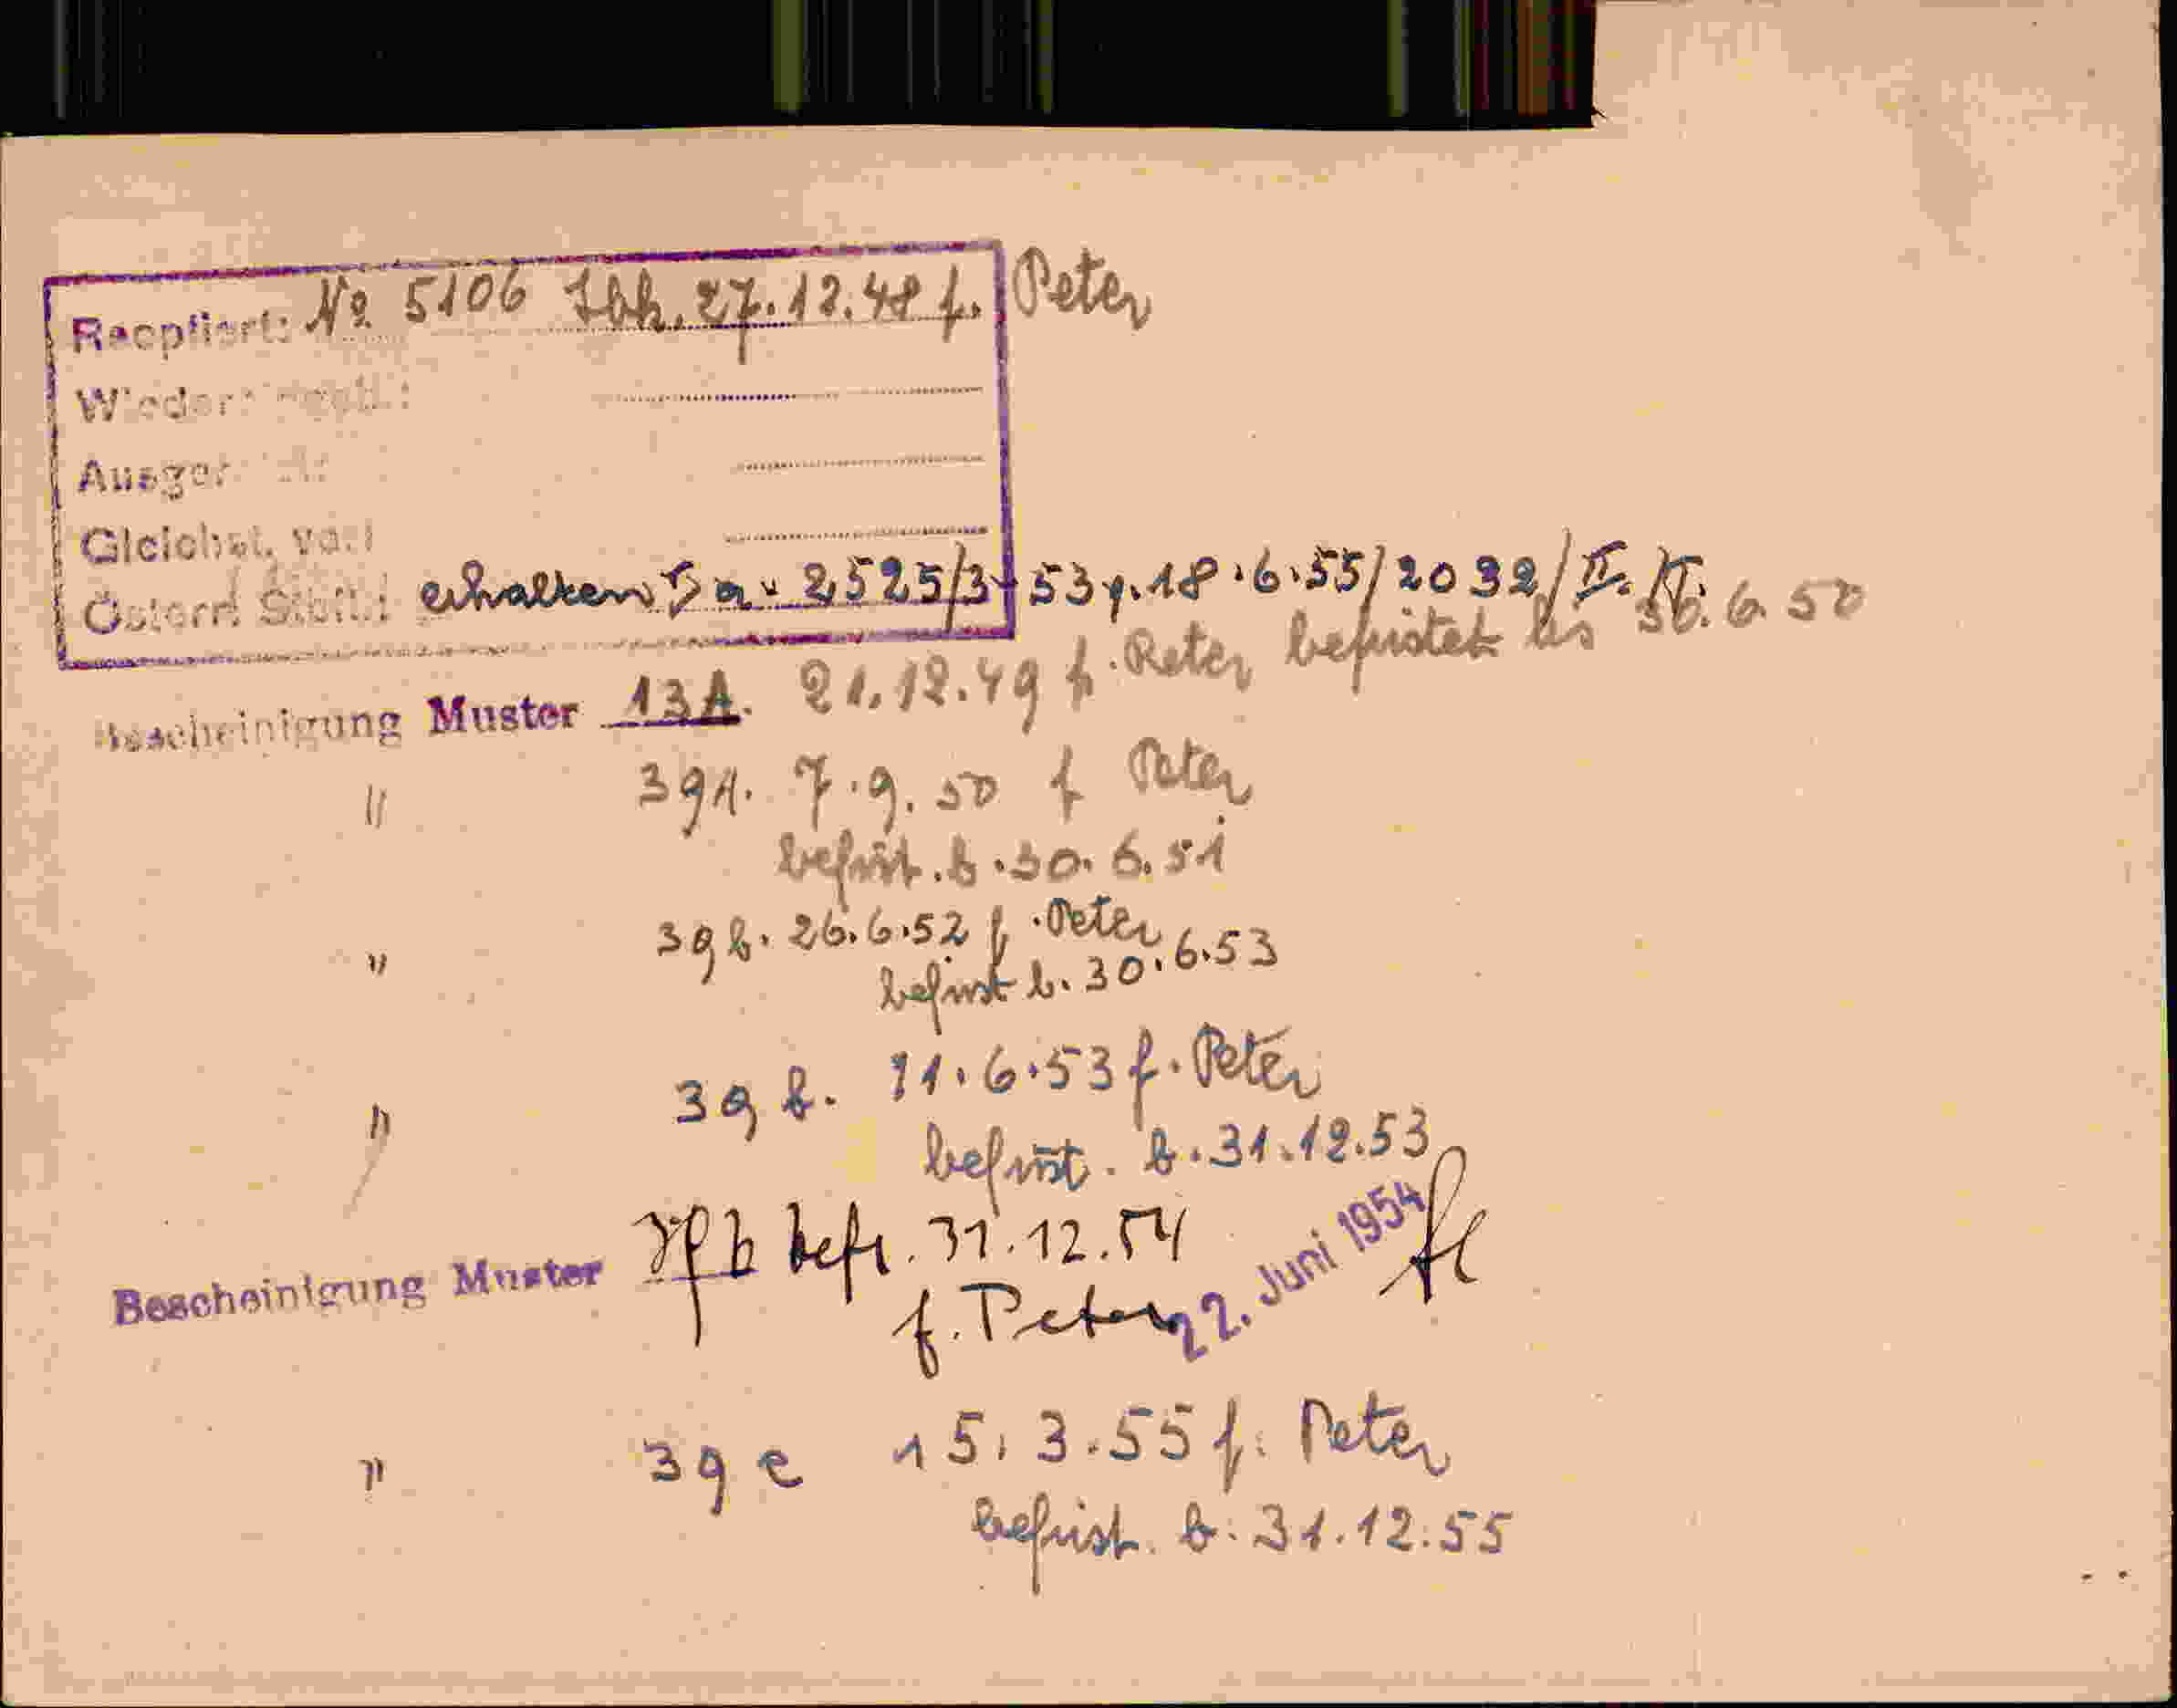 Reoptiert: No 5106 Ibk. 27.12.48 f. Peter
Wieder
Ausger
Gleichst. von
Österr. Stbft.: erhalten 2525/3-53 v. 18.6.55/2032/II.
Bescheinigung Muster 13A. 21.12.49 f. Peter befristet bis 30.6.50
" 39A. 7.9.50 f Peter
befrist. b. 30.6.51
" 39b. 26.6.52 f. Peter
befrist b. 30.6.53
" 39b. 11.6.53 f. Peter
befrist. b. 31.12.53
Bescheinigung Muster 39b befr. 31.12.54
f. Peter 22. Juni 1954
" 39c 15.3.55 f. Peter
befrist. b. 31.12.55